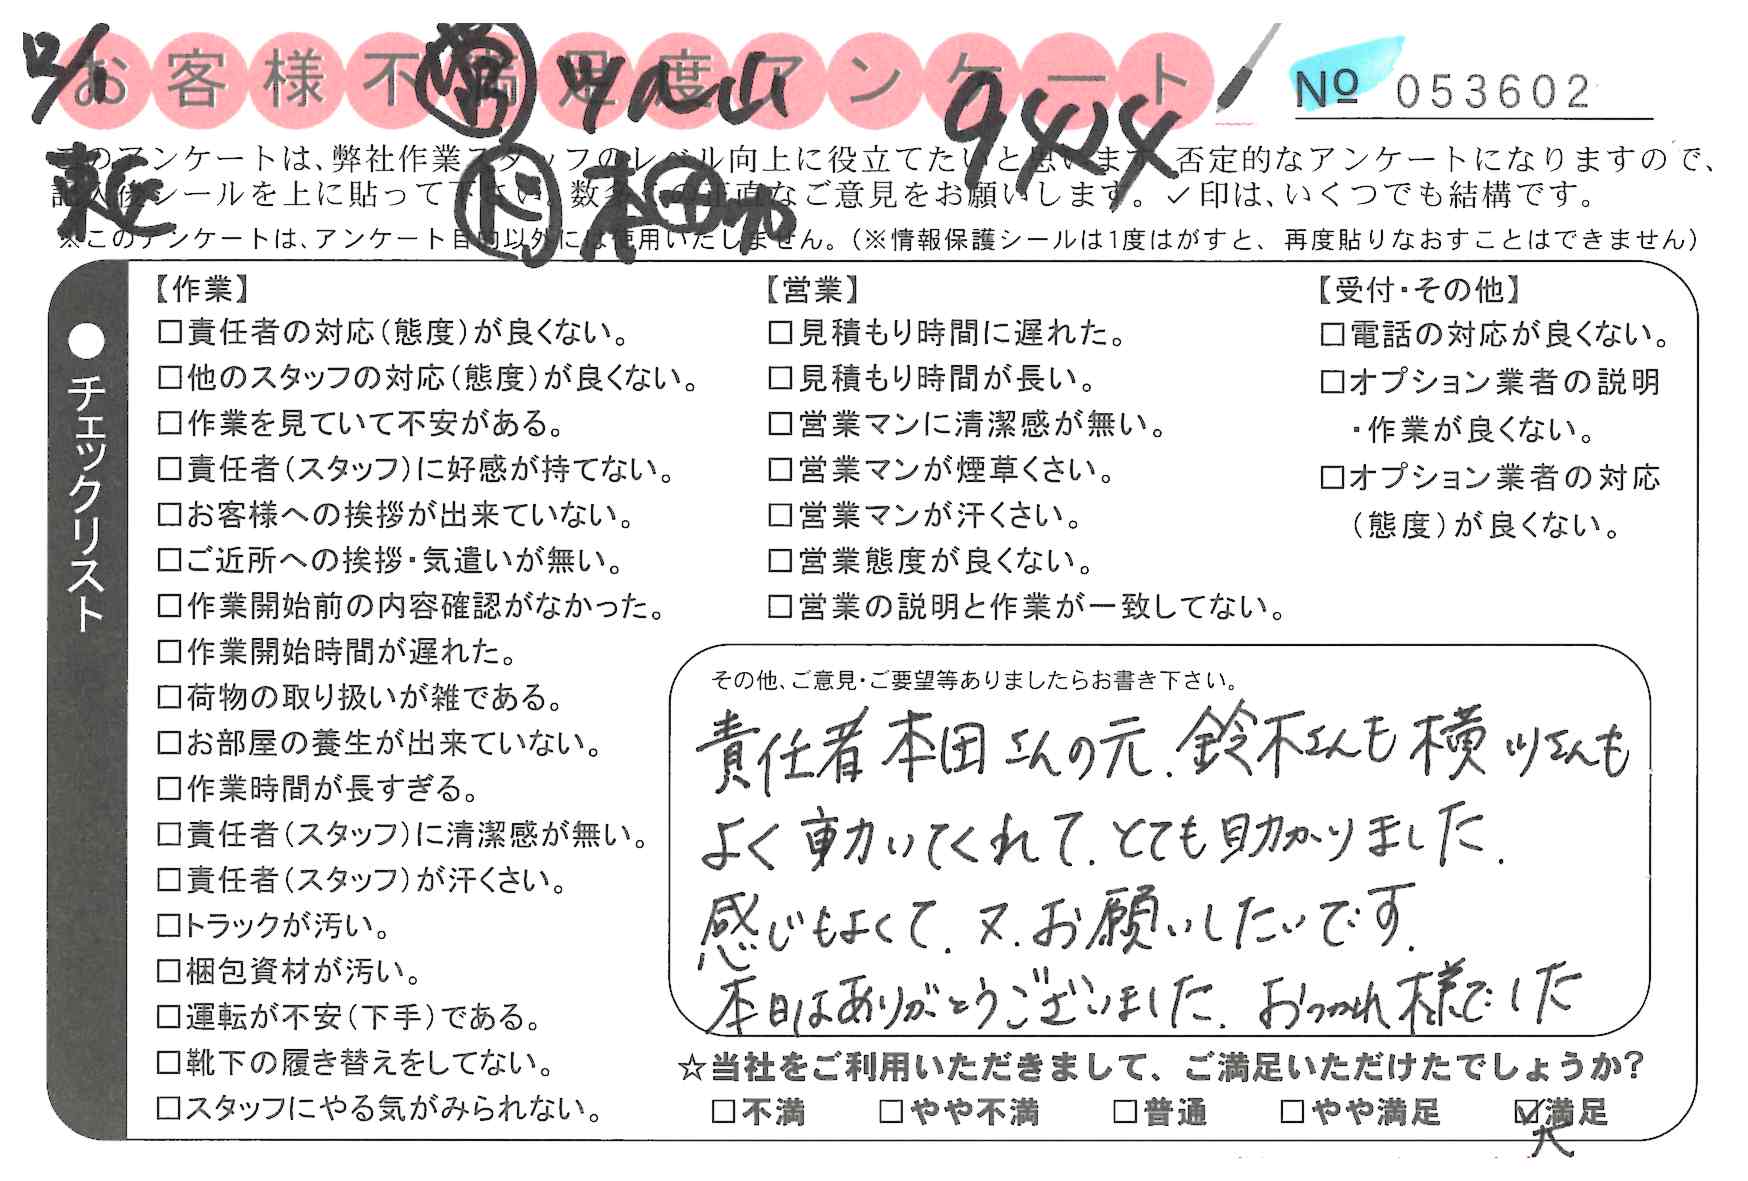 12/1
お客様不満足度アンケート
営 丸山 9424
№ 053602
このアンケートは、弊社作業スタッフのレベル向上に役立てたいと思います。否定的なアンケートになりますので、
記入後シールを上に貼って下さい。数多くの正直なご意見をお願いします。✓印は、いくつでも結構です。
本田
※このアンケートは、アンケート目的以外には使用いたしません。（※情報保護シールは1度はがすと、再度貼りなおすことはできません）
●チェックリスト
【作業】
□責任者の対応（態度）が良くない。
□他のスタッフの対応（態度）が良くない。
□作業を見ていて不安がある。
□責任者（スタッフ）に好感が持てない。
□お客様への挨拶が出来ていない。
□ご近所への挨拶・気遣いが無い。
□作業開始前の内容確認がなかった。
□作業開始時間が遅れた。
□荷物の取り扱いが雑である。
□お部屋の養生が出来ていない。
□作業時間が長すぎる。
□責任者（スタッフ）に清潔感が無い。
□責任者（スタッフ）が汗くさい。
□トラックが汚い。
□梱包資材が汚い。
□運転が不安（下手）である。
□靴下の履き替えをしてない。
□スタッフにやる気がみられない。
【営業】
□見積もり時間に遅れた。
□見積もり時間が長い。
□営業マンに清潔感が無い。
□営業マンが煙草くさい。
□営業マンが汗くさい。
□営業態度が良くない。
□営業の説明と作業が一致してない。
【受付・その他】
□電話の対応が良くない。
□オプション業者の説明
・作業が良くない。
□オプション業者の対応
（態度）が良くない。
その他、ご意見・ご要望等ありましたらお書き下さい。
責任者本田さんの元、鈴木さんも横川さんも
よく動いてくれて、とても助かりました。
感じもよくて、又、お願いしたいです。
本日はありがとうございました。おつかれ様でした
☆当社をご利用いただきまして、ご満足いただけたでしょうか？
□不満 □やや不満 □普通 □やや満足 ☑満足
大